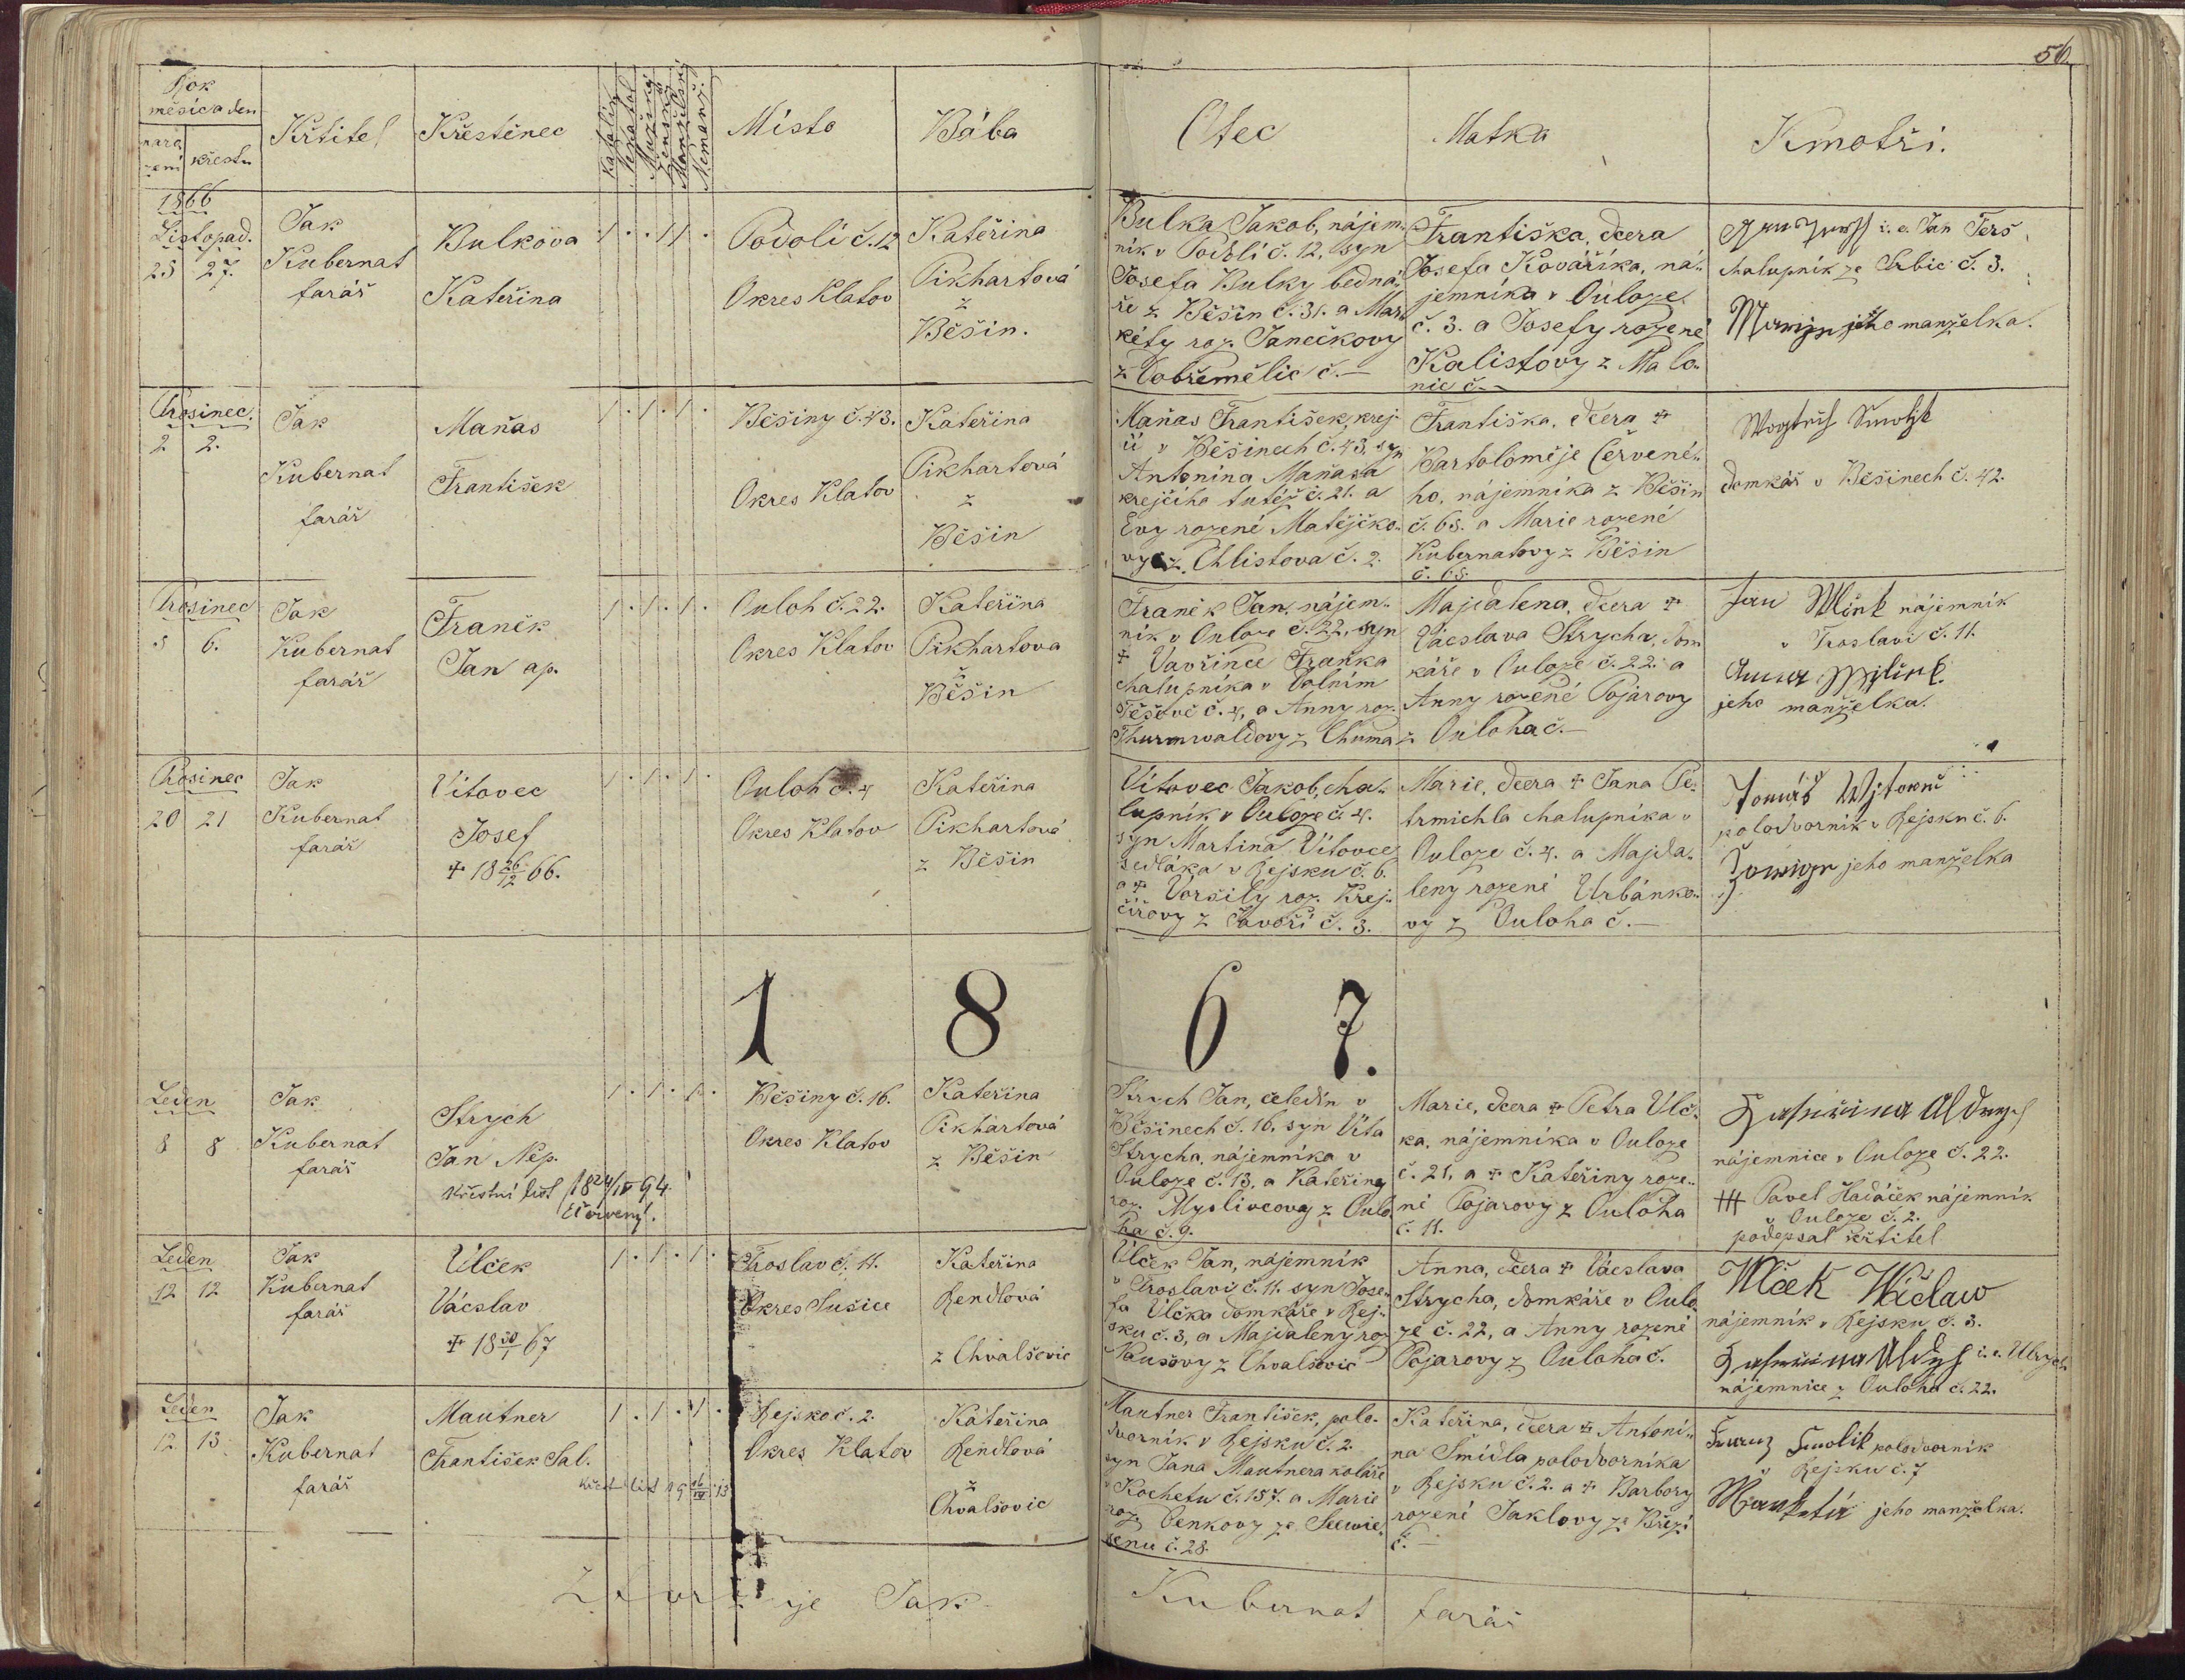 56.
Rok
měsíc a den
naro
zení
křestu
Křtitel
Křestěnec
Katolík
Nekatol
Mužský
Ženský
Manželský
Nemanž.
Místo
Bába
Otec
Matka
Kmotři.
1866
Listopad.
25 27.
Jak
Kubernat
farář
Bulkova
Kateřina
1 . . 1 1 .
Podolí č. 12
Okres Klatov
Kateřina
Pikhartová
z
Běšin.
Bulka Jakob, nájem-
ník v Podolí č. 12, syn
Josefa Bulky bedná-
ře z Běšin č. 31. a Mar-
kéty roz. Janečkovy
z Dobřemělic č. —
Františka, dcera
Josefa Kováříka, ná-
jemníka v Ouloze
č. 3. a Josefy rozené
Kalistovy z Malo-
nic č. —
i. e. Jan Terš
chalupník ze Srbic č. 3.
Marija jeho manželka.
Prosinec
2 2.
Jak
Kubernat
farář
Maňas
František
1 . 1 . 1 .
Běšiny č. 43.
Okres Klatov
Kateřina
Pikhartová
z
Běšin
Maňas František, krej-
čí v Běšinech č. 43, syn
Antonína Maňasa
krejčího tutéž č. 21. a
Evy rozené Matějčko-
vy z Chlistova č. 2.
Františka, dcera +
Bartoloměje Červené-
ho, nájemníka z Běšin
č. 68. a Marie rozené
Kubernatovy z Běšin
č. 68.
domkář v Běšinech č. 42.
Prosinec
5 6.
Jak
Kubernat
farář
Franěk
Jan ap.
1 . 1 . 1 .
Ouloh č. 22.
Okres Klatov
Kateřina
Pikhartova
z
Běšin
Franěk Jan, nájem-
ník v Ouloze č. 22, syn
+ Vavřince Fraňka
chalupníka v Dolním
Těšově č. 4, a Anny roz.
Thurmwaldovy z Chuma
Majdalena, dcera +
Vácslava Strycha, dom
káře v Ouloze č. 22. a
Anny rozené Pojarovy
z Ouloha č. —
Jan Wlček nájemník
v Troslavi č. 11.
Anna
jeho manželka.
Prosinec
20 21
Jak
Kubernat
farář
Vítovec
Josef
+ 18 26/12 66.
1 . 1 . 1 .
Ouloh č. 4
Okres Klatov
Kateřina
Pikhartová
z Běšin
Vítovec Jakob, cha-
lupník v Ouloze č. 4.
syn Martina Vítovce
sedláka v Rejsku č. 6.
a + Voršily roz. Krej-
čířovy z Javoří č. 3.
Marie, dcera + Jana Pe-
trmichla chalupníka v
Ouloze č. 4. a Majda-
leny rozené Urbánko-
vy z Ouloha č. —
Tomáš Wjtowec
polodvorník v Rejsku č. 6.
jeho manželka
1 8 6 7.
Leden
8 8
Jak
Kubernat
farář
Strych
Jan Nep.
Křestní list 18 24/IV 94.
Červený.
1 . 1 . 1 .
Běšiny č. 16.
Okres Klatov
Kateřina
Pikhartová
z Běšin
Strych Jan, čeledín v
Běšinech č. 16, syn Víta
Strycha, nájemníka v
Ouloze č. 13, a Kateřiny
roz. Myslivcovy z Oulo
ha č. 9.
Marie, dcera + Petra Vlč-
ka, nájemníka v Ouloze
č. 21, a + Kateřiny roze-
né Pojarovy z Ouloha
č. 11.
nájemnice v Ouloze č. 22.
+++ Pavel Hadáček nájemník
v Ouloze č. 2.
podepsal křtitel
Leden
12 12
Jak
Kubernat
farář
Vlček
Vácslav
+ 18 30/1 67
1 . 1 . 1 .
Troslav č. 11.
Okres Sušice
Kateřina
Rendlová
z Chvalšovic
Vlček Jan, nájemník
v Troslavi č. 11. syn Jose-
fa Vlčka domkáře v Rej-
sku č. 3, a Majdaleny roz
Naušovy z Chvalšovic
Anna, dcera + Vácslava
Strycha, domkáře v Oulo
ze č. 22, a Anny rozené
Pojarovy z Ouloha č.
Wlček Wáclaw
nájemník v Rejsku č. 3.
i. e. Ulrych
nájemnice z Ouloha č. 22.
Leden
12 13
Jak
Kubernat
farář
Mautner
František Sal.
Křest. list 19 16/IV 13
1 . 1 . 1 .
Rejsko č. 2.
Okres Klatov
Kateřina
Rendlová
z
Chvalšovic
Mautner František, polo-
dvorník v Rejsku č. 2.
syn Jana Mautnera koláře
v Kochetu č. 157. a Marie
roz. Denkovy ze Seewie-
senu č. 28.
Kateřina, dcera + Antoní-
na Šmídla polodvorníka
v Rejsku č. 2. a + Barbory
rozené Jaklovy ze Březí
č. —
Franz Smolik polodvorník
v Rejsku č. 7
Markéta jeho manželka.
je Jak Kubernat farář